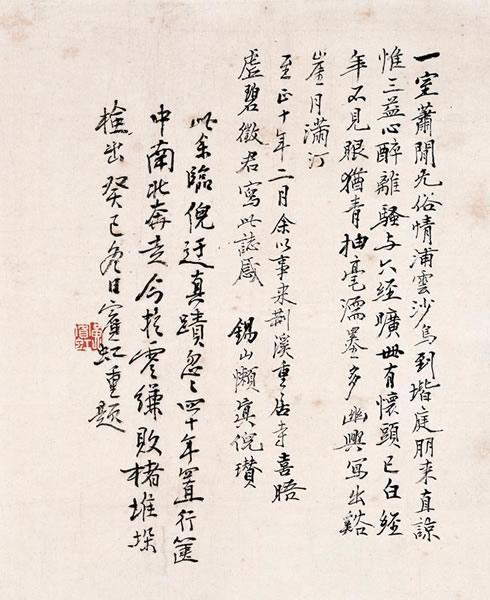 一室蕭閒无俗情浦雲沙鳥到堦庭朋來直諒
惟三益心醉離騷与六經曠世有懷頭已白經
年不見眼猶青抽毫濡墨多幽興寫出谿
崖月滿汀
至正十年二月余以事來荆溪重居寺喜晤
虛碧徵君寫此誌感 錫山懶倪瓚
此余臨倪迂真蹟忽〻四十年置行篋
中南北奔走今於零縑敗楮堆垛
檢出癸巳冬日賓虹重題